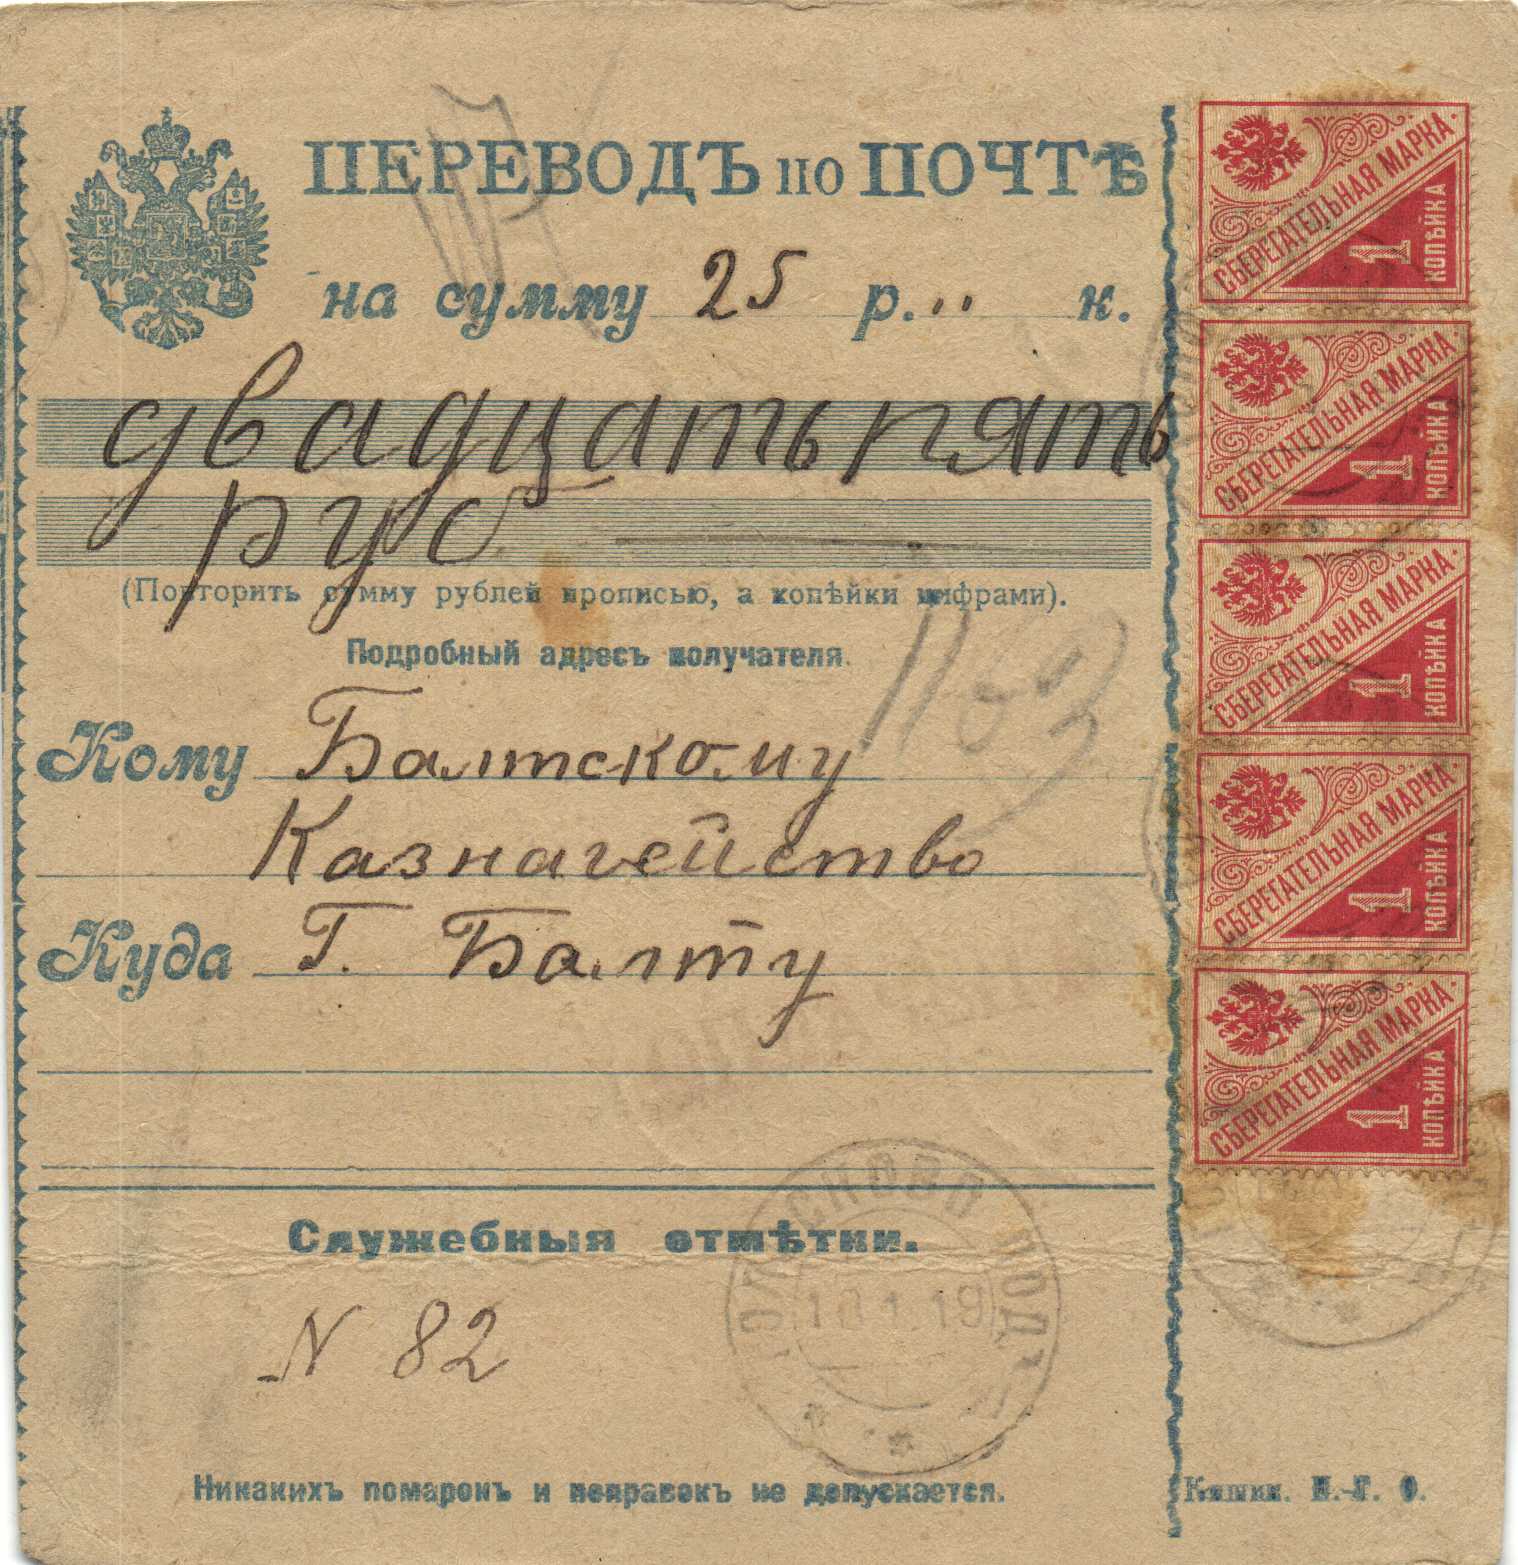 ПЕРЕВОДЪ по ПОЧТѢ
на сумму 25 р. .. к.
двадцать пять
руб
(Повторить сумму рублей прописью, а копѣйки цифрами).
Подробный адресъ получателя.
Кому Балтскому
Казначейство
Куда Г. Балту
Служебныя отмѣтки.
N 82
10.1.19
Никакихъ помарокъ и поправокъ не допускается.
Кишин. П.-Т. О.
СБЕРЕГАТЕЛЬНАЯ МАРКА.
1 КОПѢЙКА
СБЕРЕГАТЕЛЬНАЯ МАРКА.
1 КОПѢЙКА
СБЕРЕГАТЕЛЬНАЯ МАРКА.
1 КОПѢЙКА
СБЕРЕГАТЕЛЬНАЯ МАРКА.
1 КОПѢЙКА
СБЕРЕГАТЕЛЬНАЯ МАРКА.
1 КОПѢЙКА